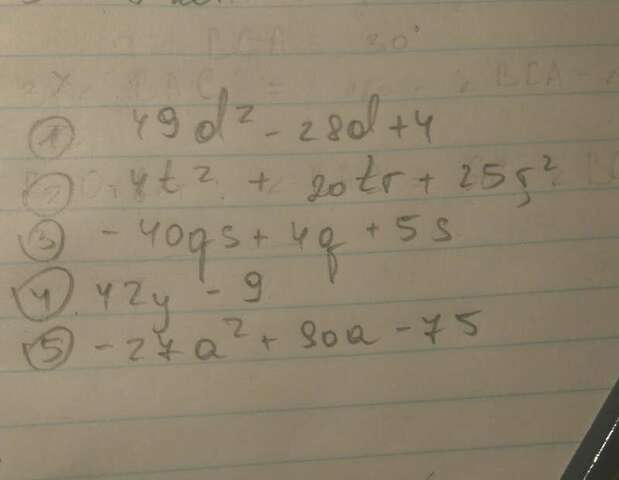 ① 49d² - 28d + 4
② 4t² + 20tr + 25r²
③ - 40qs + 4q + 5s
④ 42y - 9
⑤ - 27a² + 90a - 75